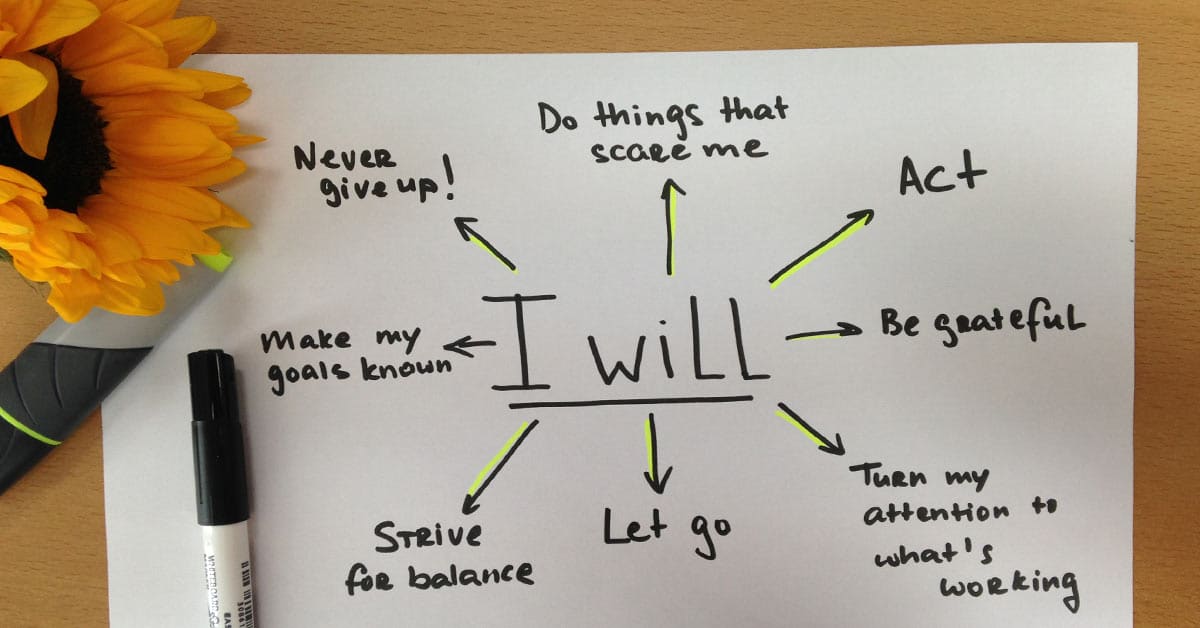 Do things that
scare me
Never
give up!
Act
I will
Be grateful
Make my
goals known
Turn my
attention to
what's
working
Let go
Strive
for balance